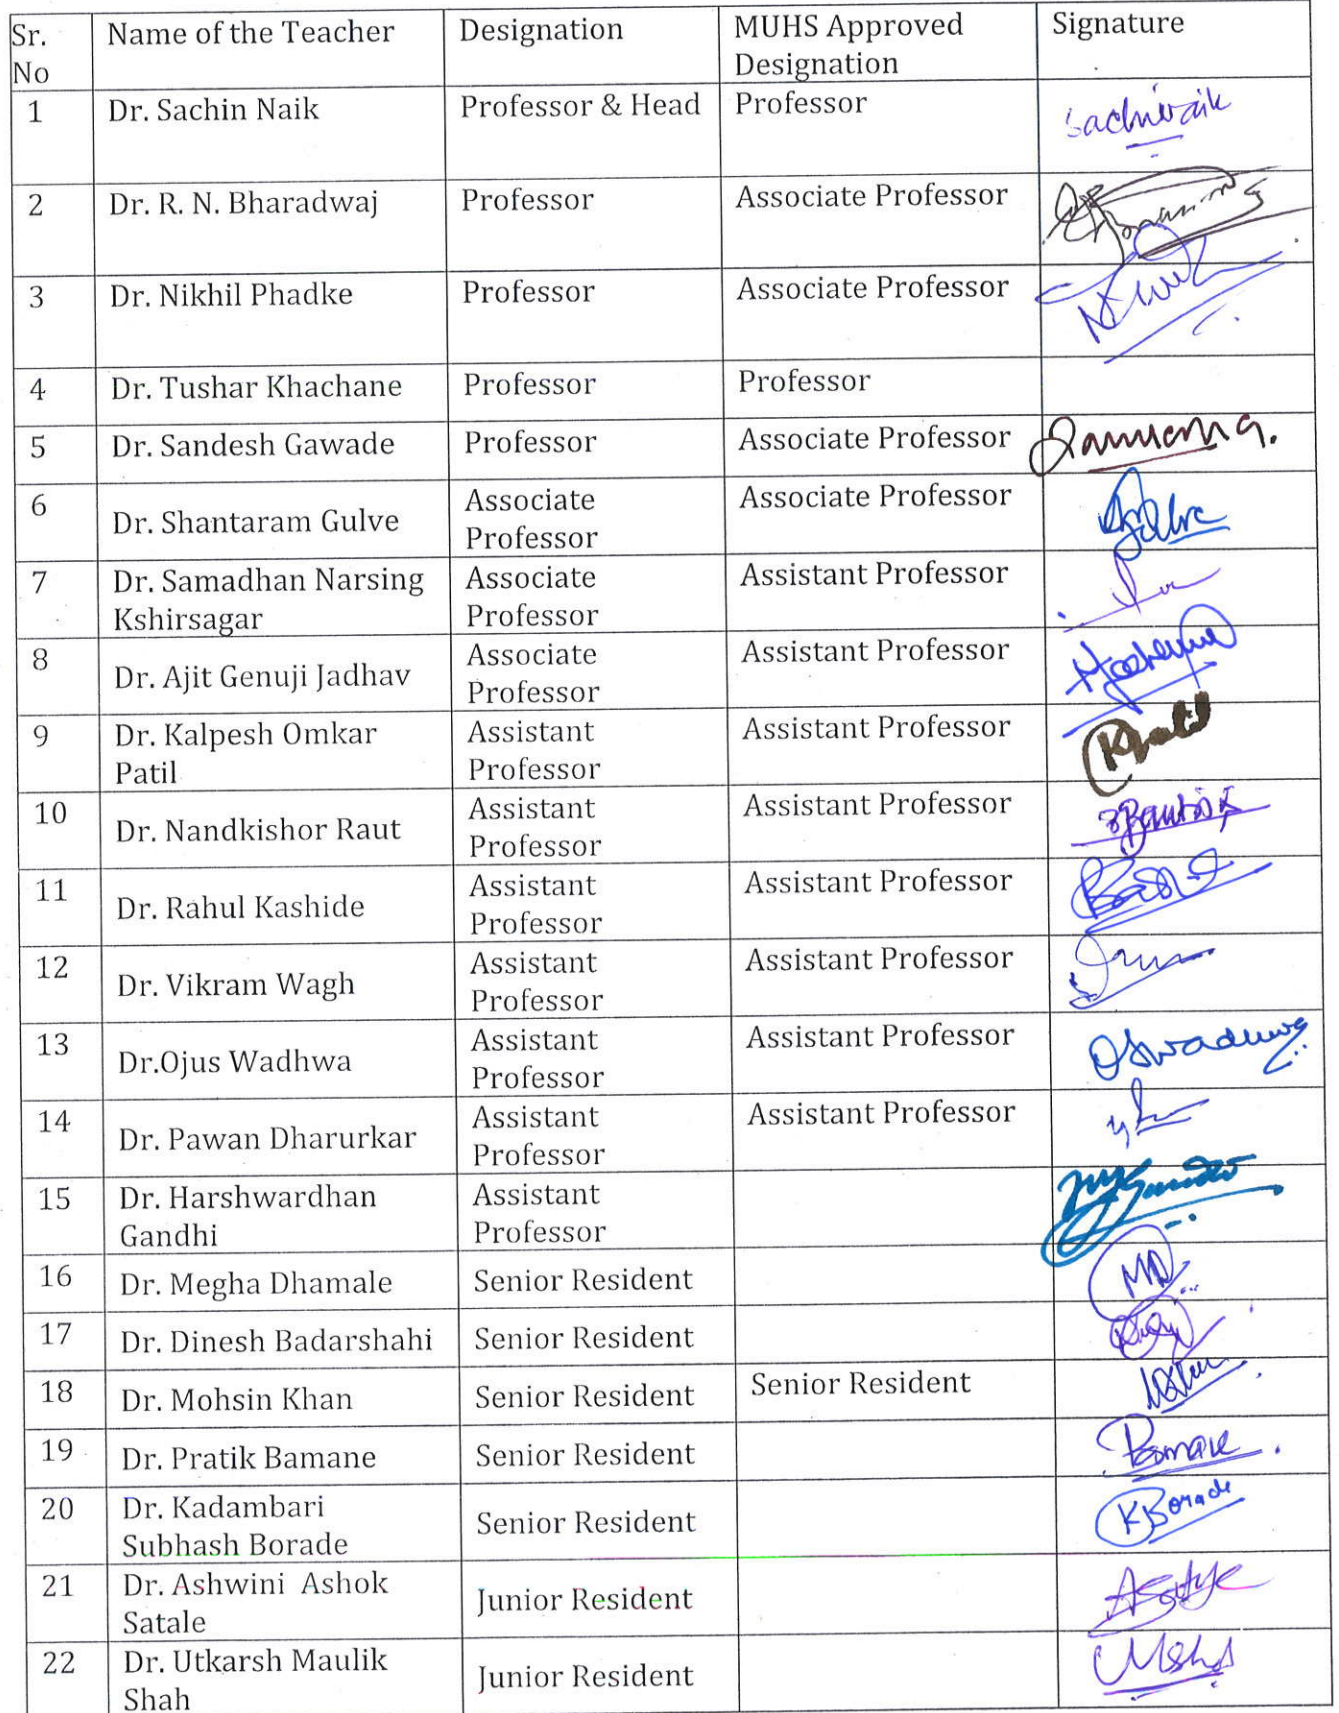 Sr. No | Name of the Teacher | Designation | MUHS Approved Designation | Signature
1 | Dr. Sachin Naik | Professor & Head | Professor | Sachinaik
2 | Dr. R. N. Bharadwaj | Professor | Associate Professor
3 | Dr. Nikhil Phadke | Professor | Associate Professor
4 | Dr. Tushar Khachane | Professor | Professor
5 | Dr. Sandesh Gawade | Professor | Associate Professor
6 | Dr. Shantaram Gulve | Associate Professor | Associate Professor
7 | Dr. Samadhan Narsing Kshirsagar | Associate Professor | Assistant Professor
8 | Dr. Ajit Genuji Jadhav | Associate Professor | Assistant Professor
9 | Dr. Kalpesh Omkar Patil | Assistant Professor | Assistant Professor
10 | Dr. Nandkishor Raut | Assistant Professor | Assistant Professor
11 | Dr. Rahul Kashide | Assistant Professor | Assistant Professor
12 | Dr. Vikram Wagh | Assistant Professor | Assistant Professor
13 | Dr.Ojus Wadhwa | Assistant Professor | Assistant Professor
14 | Dr. Pawan Dharurkar | Assistant Professor | Assistant Professor
15 | Dr. Harshwardhan Gandhi | Assistant Professor
16 | Dr. Megha Dhamale | Senior Resident | | MD
17 | Dr. Dinesh Badarshahi | Senior Resident
18 | Dr. Mohsin Khan | Senior Resident | Senior Resident
19 | Dr. Pratik Bamane | Senior Resident
20 | Dr. Kadambari Subhash Borade | Senior Resident | | KBorade
21 | Dr. Ashwini Ashok Satale | Junior Resident
22 | Dr. Utkarsh Maulik Shah | Junior Resident